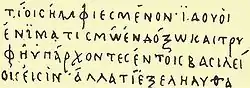 ΤΙΟΙϹΗΜΦΙΕϹΜΕΝΟΝ·ΪΔΟΥΟΙ
ΕΝΪΜΑΤΙϹΜΩΕΝΔΟΞΩΚΑΙΤΡΥ
ΦΗΥΠΑΡΧΟΝΤΕϹΕΝΤΟΙϹΒΑϹΙΛΕΙ
ΟΙϹΕΙϹΙΝ·ΑΛΛΑΤΙΕΞΕΛΗΛΥΘΑ